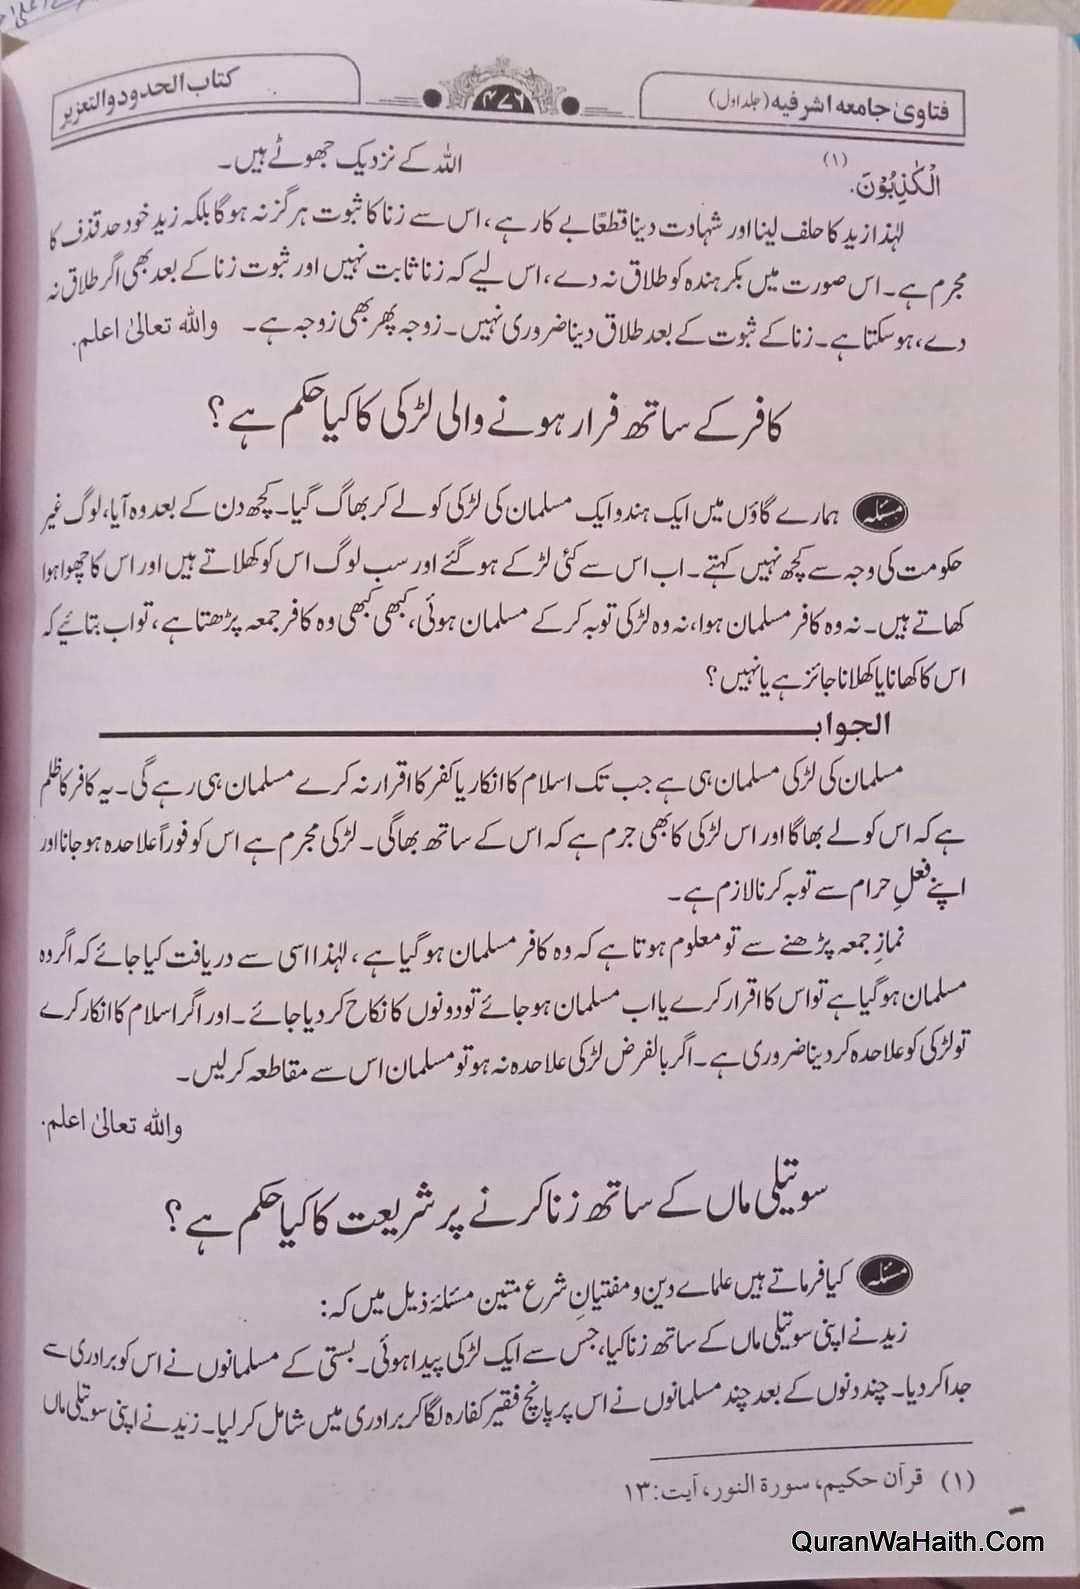 فتاویٰ جامعہ اشرفیہ (جلد اول)
۴۷۶
کتاب الحدود والتعزیر
الْکٰذِبُوْنَ. (۱)
اللہ کے نزدیک جھوٹے ہیں۔
لہٰذا زید کا حلف لینا اور شہادت دینا قطعًا بے کار ہے، اس سے زنا کا ثبوت ہرگز نہ ہوگا بلکہ زید خود حد قذف کا
مجرم ہے۔ اس صورت میں بکر ہندہ کو طلاق نہ دے، اس لیے کہ زنا ثابت نہیں اور ثبوت زنا کے بعد بھی اگر طلاق نہ
دے، ہو سکتا ہے۔ زنا کے ثبوت کے بعد طلاق دینا ضروری نہیں۔ زوجہ پھر بھی زوجہ ہے۔ واللہ تعالیٰ اعلم.
کافر کے ساتھ فرار ہونے والی لڑکی کا کیا حکم ہے؟
مسئلہ ہمارے گاؤں میں ایک ہندو ایک مسلمان کی لڑکی کو لے کر بھاگ گیا۔ کچھ دن کے بعد وہ آیا، لوگ غیر
حکومت کی وجہ سے کچھ نہیں کہتے۔ اب اس سے کئی لڑکے ہو گئے اور سب لوگ اس کو کھلاتے ہیں اور اس کا چھوا ہوا
کھاتے ہیں۔ نہ وہ کافر مسلمان ہوا، نہ وہ لڑکی توبہ کر کے مسلمان ہوئی، کبھی کبھی وہ کافر جمعہ پڑھتا ہے، تو اب بتائیے کہ
اس کا کھانا یا کھلانا جائز ہے یا نہیں؟
الجواب
مسلمان کی لڑکی مسلمان ہی ہے جب تک اسلام کا انکار یا کفر کا اقرار نہ کرے مسلمان ہی رہے گی۔ یہ کافر کا ظلم
ہے کہ اس کو لے بھاگا اور اس لڑکی کا بھی جرم ہے کہ اس کے ساتھ بھاگی۔ لڑکی مجرم ہے اس کو فوراً علاحدہ ہو جانا اور
اپنے فعلِ حرام سے توبہ کرنا لازم ہے۔
نمازِ جمعہ پڑھنے سے تو معلوم ہوتا ہے کہ وہ کافر مسلمان ہو گیا ہے، لہٰذا اسی سے دریافت کیا جائے کہ اگر وہ
مسلمان ہو گیا ہے تو اس کا اقرار کرے یا اب مسلمان ہو جائے تو دونوں کا نکاح کر دیا جائے۔ اور اگر اسلام کا انکار کرے
تو لڑکی کو علاحدہ کر دینا ضروری ہے۔ اگر بالفرض لڑکی علاحدہ نہ ہو تو مسلمان اس سے مقاطعہ کر لیں۔
واللہ تعالیٰ اعلم.
سوتیلی ماں کے ساتھ زنا کرنے پر شریعت کا کیا حکم ہے؟
مسئلہ کیا فرماتے ہیں علماے دین و مفتیانِ شرع متین مسئلۂ ذیل میں کہ:
زید نے اپنی سوتیلی ماں کے ساتھ زنا کیا، جس سے ایک لڑکی پیدا ہوئی۔ بستی کے مسلمانوں نے اس کو برادری سے
جدا کر دیا۔ چند دنوں کے بعد چند مسلمانوں نے اس پر پانچ فقیر کفارہ لگا کر برادری میں شامل کر لیا۔ زید نے اپنی سوتیلی ماں
(۱) قرآن حکیم، سورة النور، آیت: ۱۳
QuranWaHaith.Com